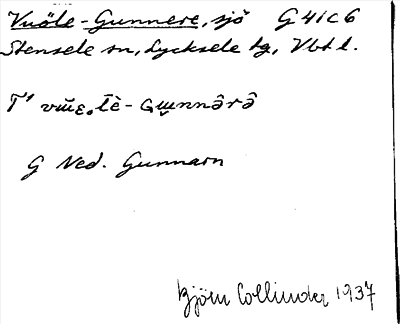 Vuöle-Gunnere, sjö G 41 c 6
Stensele sn, Lycksele tg, Vbt l.
G Ned. Gunnarn
Björn Collinder 1937